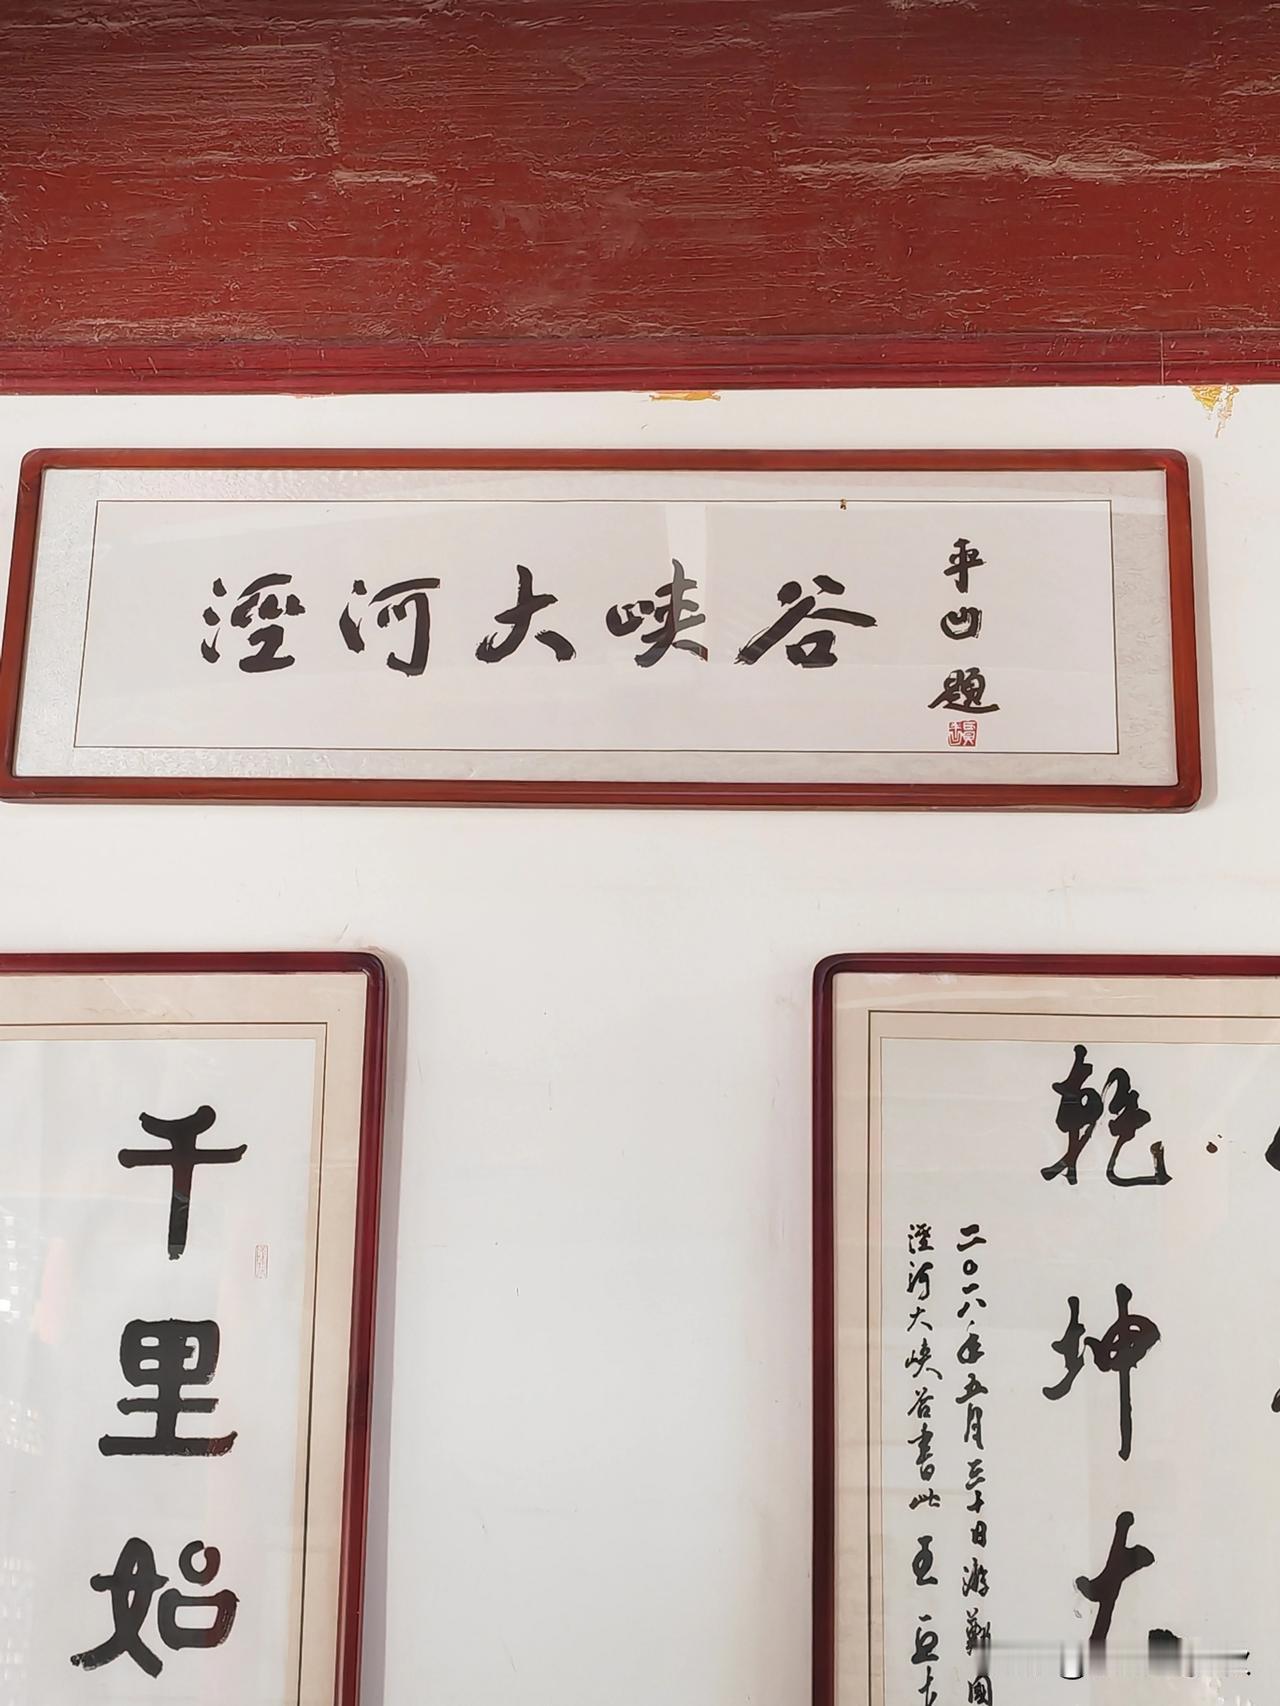 涇河大峡谷
平凹題
千里始
乾坤大
二〇一八年五月三十日游鄭國
涇河大峡谷書此 王